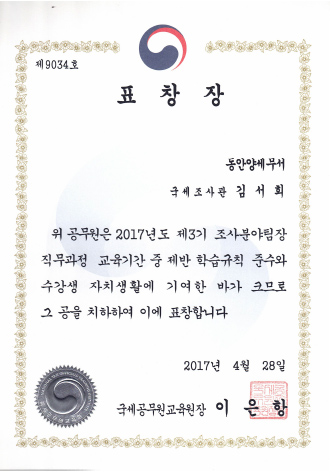 제9034호
표 창 장
동안양세무서
국세조사관 김 서 희
위 공무원은 2017년도 제3기 조사분야팀장
직무과정 교육기간 중 제반 학습규칙 준수와
수강생 자치생활에 기여한 바가 크므로
그 공을 치하하여 이에 표창합니다
2017년 4월 28일
국세공무원교육원장 이 은 항